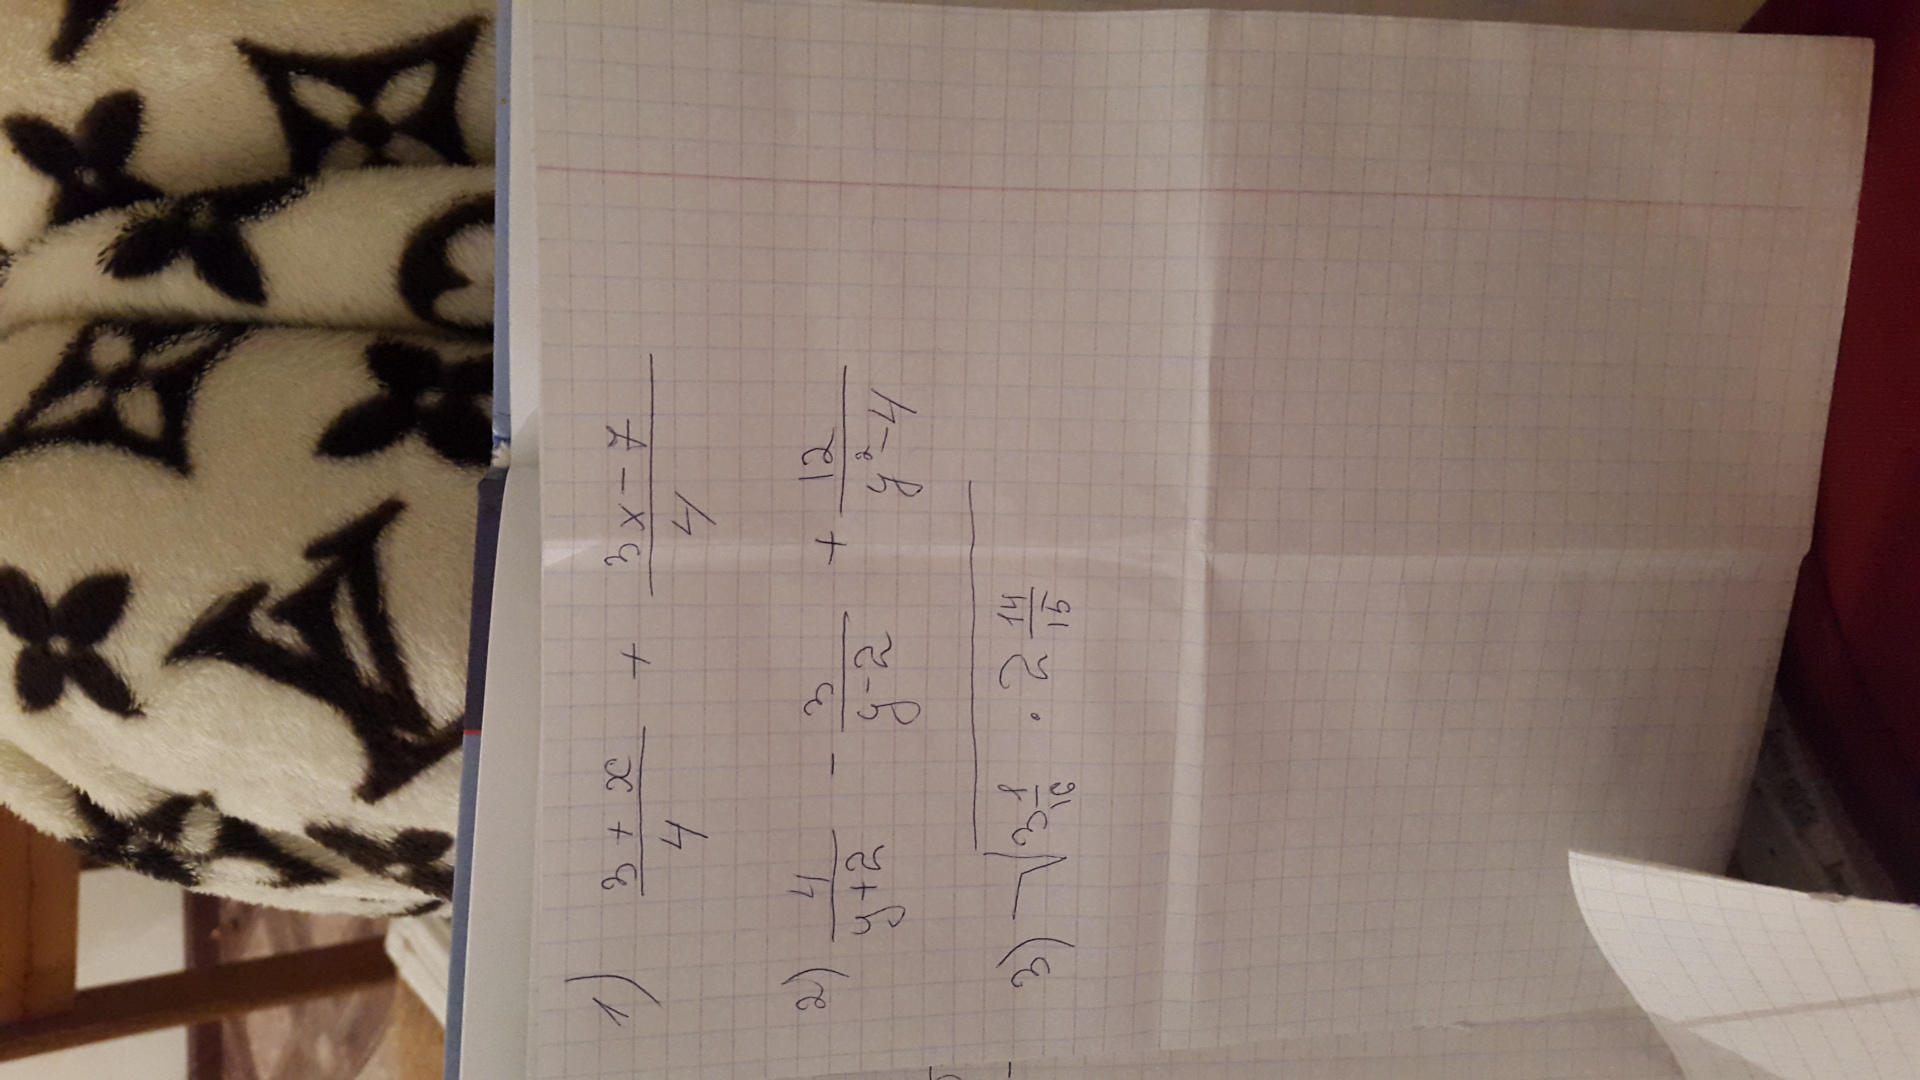 1) \frac{3+x}{4} + \frac{3x-7}{4}
2) \frac{4}{y+2} - \frac{3}{y-2} + \frac{12}{y^2-4}
3) \sqrt{3\frac{1}{16} \cdot 2\frac{14}{15}}